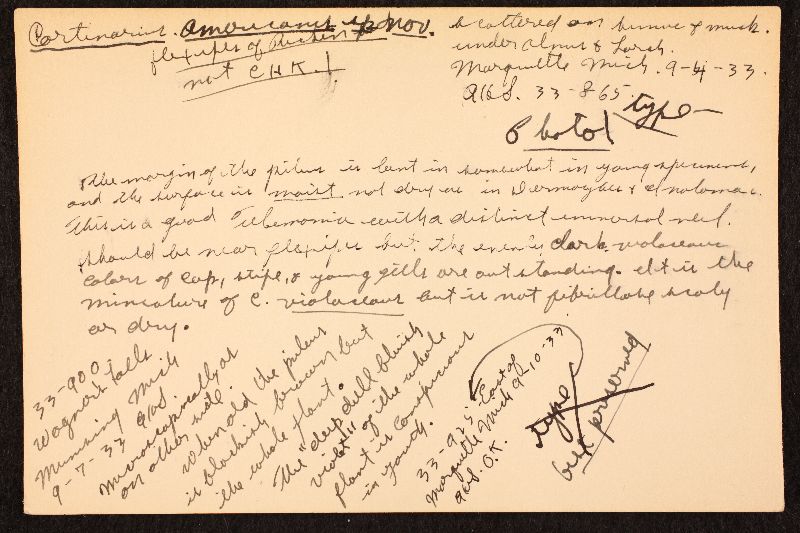 Cortinarius americanus sp nov.
flexipes of authors
not CHK!
scattered on humus & muck.
under alnus & Larch.
Marquette Mich. 9-4-33.
AHS. 33-865 type
Photo!
The margin of the pileus is bent in somewhat in young specimens,
and the surface is moist not dry as in Dermocybes & Inoloma.
This is a good Telemonia with a distinct universal veil.
should be near flexipes but the evenly dark violaceous
colors of cap, stipe, & young gills are outstanding. It is the
miniature of C. violaceus but is not fibrillose scaly
or dry.
33-900
Wagners Falls
Munising Mich
9-7-33 AHS.
microscopically as
on other note.
When old the pileus
is blackish brown but
the whole plant.
The "deep dull bluish
violet" of the whole
plant is conspicuous
in youth.
33-925 East of
Marquette Mich 9-10-33
AHS. O.K.
type
best preserved